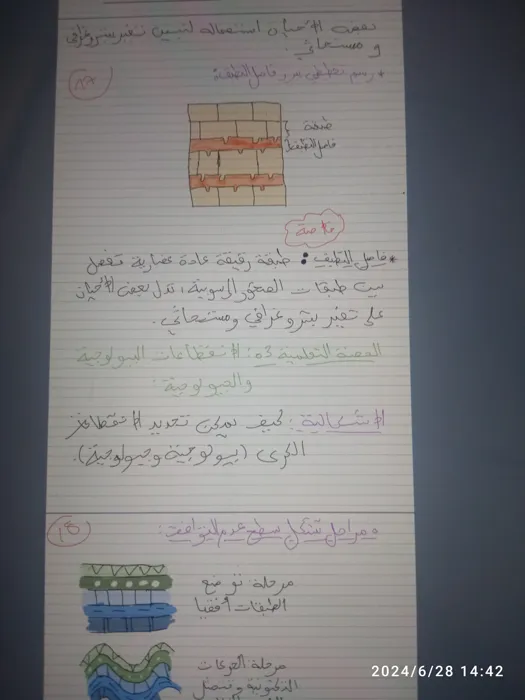 بعض الأحيان استعماله لتبيين تغير بتروغرافي
و مستحاثي.
رسم تخطيطي يبرز فاصل التطبق:
طبقة
فاصل التطبق
خلاصة
فاصل التطبق: طبقة رقيقة عادة غضارية تفصل
بين طبقات الصخور الرسوبية، تدل بعض الأحيان
على تغير بتروغرافي ومستحاثي.
الحصة التعلمية 03: الانقطاعات البيولوجية
والجيولوجية
الإشكالية: كيف يمكن تحديد الانقطاعات
الكبرى (بيولوجية وجيولوجية).
مراحل تشكل سطح عدم التوافق:
مرحلة توضع
الطبقات أفقيا
مرحلة الحركات
التكتونية و
2024/6/28 14:42